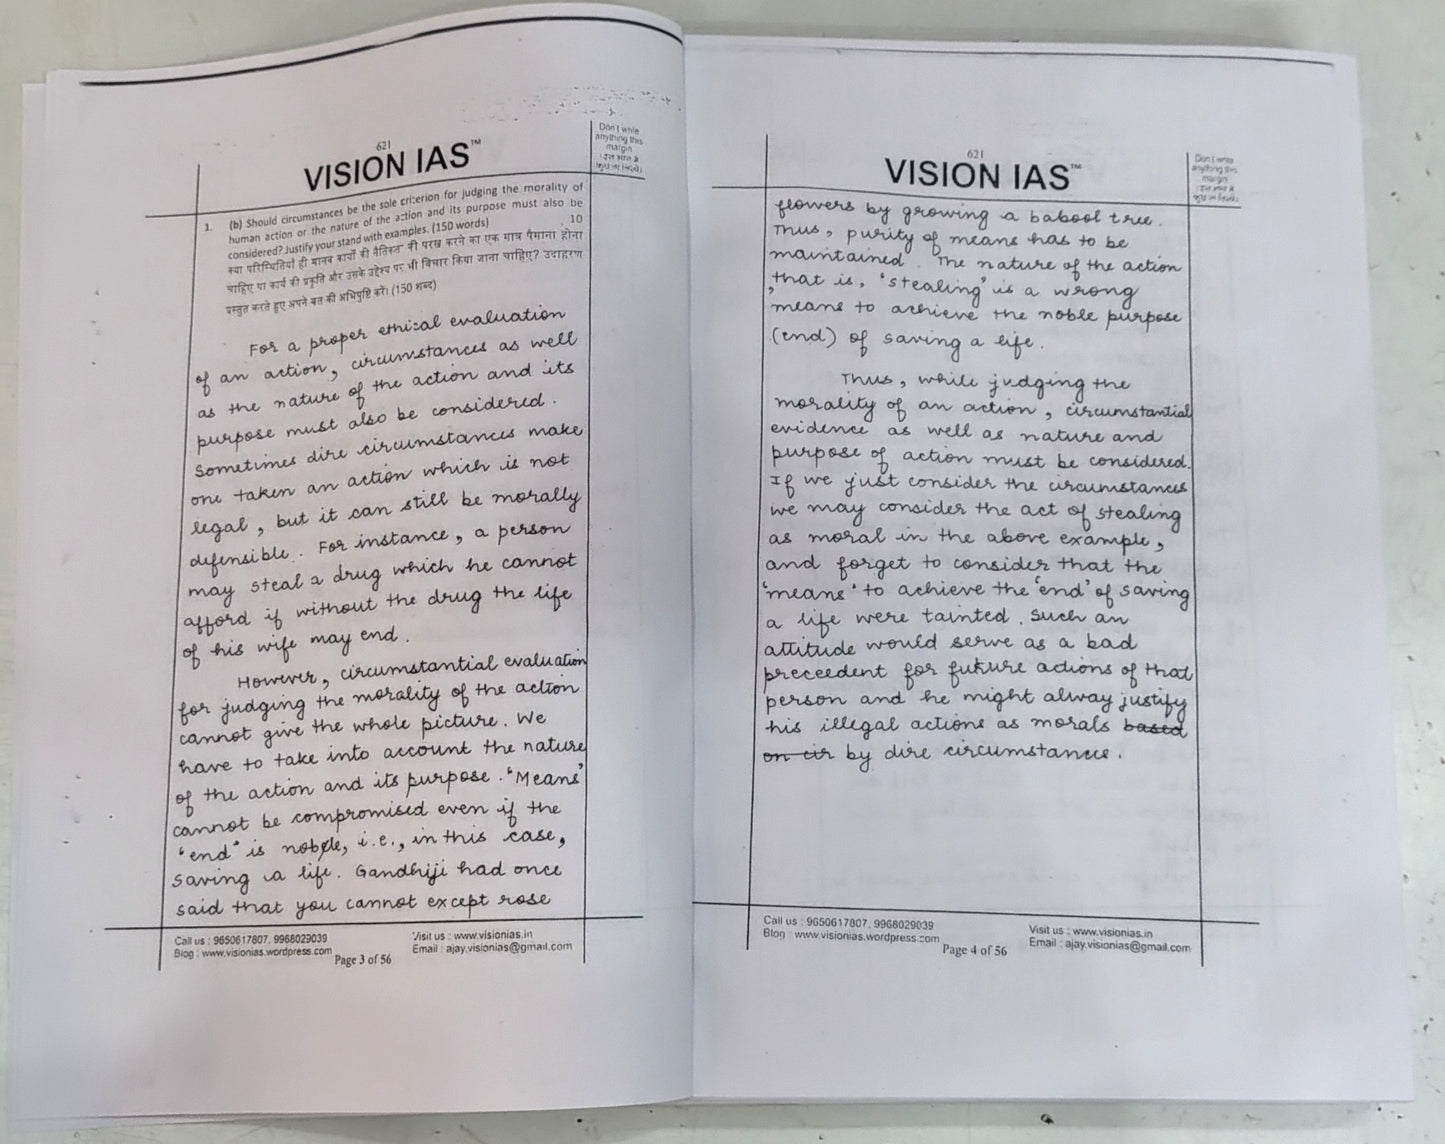 621
VISION IAS™
Don't write
anything this
margin
1. (b) Should circumstances be the sole criterion for judging the morality of
human action or the nature of the action and its purpose must also be
considered? Justify your stand with examples. (150 words) 10
क्या परिस्थितियाँ ही मानव कार्यों की नैतिकता की परख करने का एक मात्र पैमाना होना
चाहिए या कार्य की प्रकृति और उसके उद्देश्य पर भी विचार किया जाना चाहिए? उदाहरण
प्रस्तुत करते हुए अपने मत की अभिपुष्टि करें। (150 शब्द)
For a proper ethical evaluation
of an action, circumstances as well
as the nature of the action and its
purpose must also be considered.
Sometimes dire circumstances make
one taken an action which is not
legal, but it can still be morally
defensible. For instance, a person
may steal a drug which he cannot
afford if without the drug the life
of his wife may end.
However, circumstantial evaluation
for judging the morality of the action
cannot give the whole picture. We
have to take into account the nature
of the action and its purpose. 'Means'
cannot be compromised even if the
'end' is noble, i.e., in this case,
saving a life. Gandhiji had once
said that you cannot except rose
Call us : 9650617807, 9968029039
Visit us : www.visionias.in
Blog : www.visionias.wordpress.com
Email : ajay.visionias@gmail.com
Page 3 of 56
621
VISION IAS™
Don't write
anything this
margin
flowers by growing a babool tree.
Thus, purity of means has to be
maintained. The nature of the action
, that is, 'stealing' is a wrong
means to achieve the noble purpose
(end) of saving a life.
Thus, while judging the
morality of an action, circumstantial
evidence as well as nature and
purpose of action must be considered.
If we just consider the circumstances
we may consider the act of stealing
as moral in the above example,
and forget to consider that the
'means' to achieve the 'end' of saving
a life were tainted. Such an
attitude would serve as a bad
preceedent for future actions of that
person and he might alway justify
his illegal actions as morals based
on cir by dire circumstances.
Call us : 9650617807, 9968029039
Visit us : www.visionias.in
Blog : www.visionias.wordpress.com
Email : ajay.visionias@gmail.com
Page 4 of 56